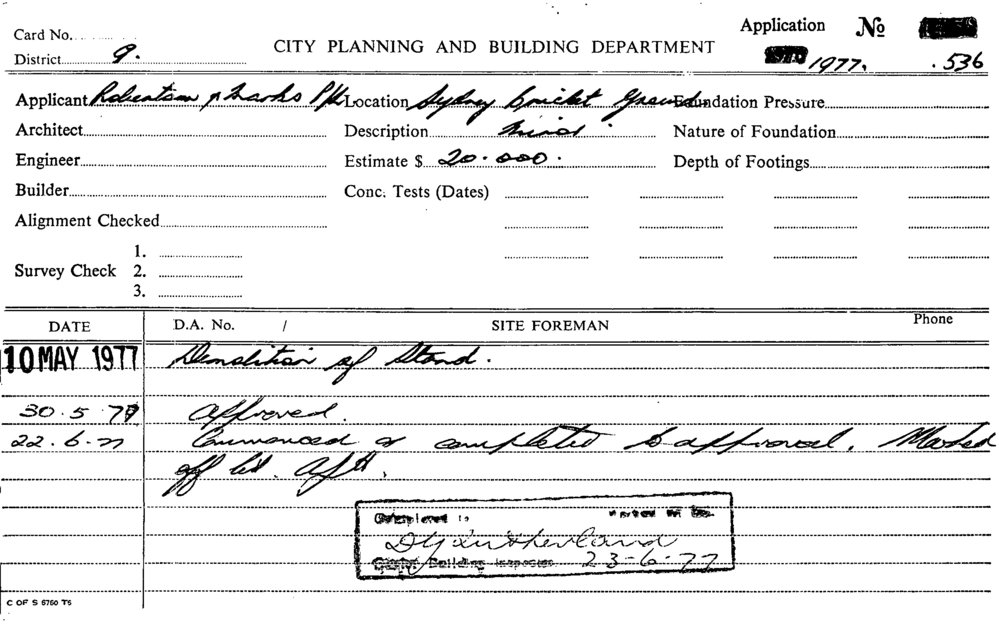 Application No
Card No.
CITY PLANNING AND BUILDING DEPARTMENT
District 9. 1977. .536
Applicant Robertson & Marks P/L Location Sydney Cricket Ground Foundation Pressure
Architect Description Minor. Nature of Foundation
Engineer Estimate $ 20.000. Depth of Footings
Builder Conc. Tests (Dates)
Alignment Checked
1.
Survey Check 2.
3.
DATE D.A. No. / SITE FOREMAN Phone
10 MAY 1977 Demolition of Stand.
30.5.77 Approved.
22.6.77 Commenced & completed to approval. Marked
off
Completed
23-6-77
Building Inspector
C OF S 6760 TS